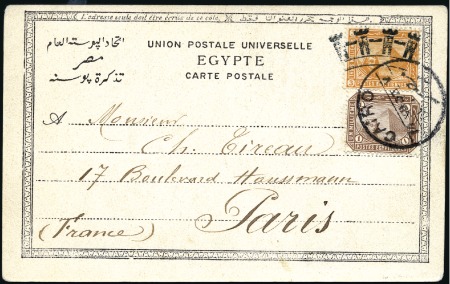 L'adresse seule doit être écrite de ce côté.
UNION POSTALE UNIVERSELLE
EGYPTE
CARTE POSTALE
اتحاد البوستة العام
مصر
تذكرة بوسته
CAIRO
A Monsieur
Ch. Cireau
17 Boulevard Haussmann
Paris
(France)